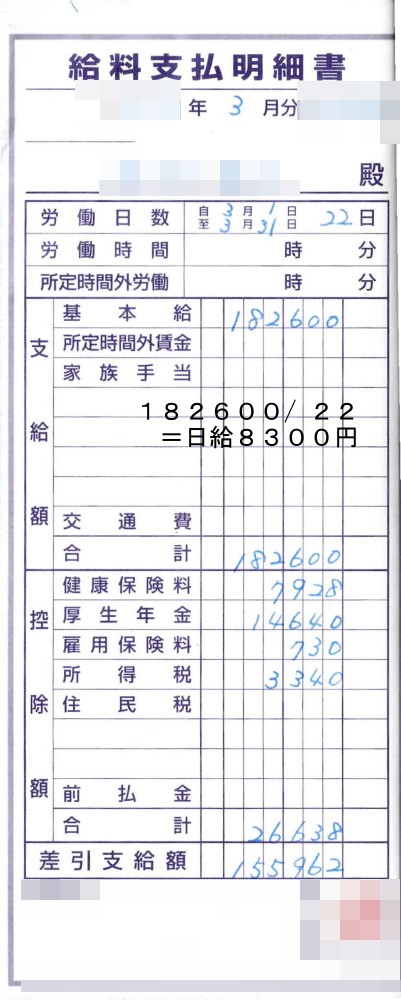 給料支払明細書
年 3 月分
殿
労働日数 自 3 月 1 日 至 3 月 31 日 22 日
労働時間 時 分
所定時間外労働 時 分
支給額
基本給 182600
所定時間外賃金
家族手当
182600/22
=日給8300円
交通費
合計 182600
控除額
健康保険料 7928
厚生年金 14640
雇用保険料 730
所得税 3340
住民税
前払金
合計 26638
差引支給額 155962